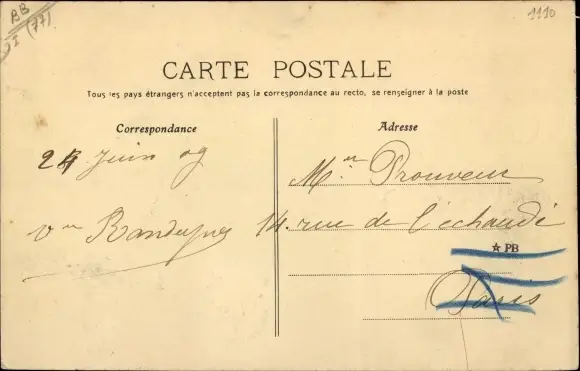 BB
(77)
I
1110
CARTE POSTALE
Tous les pays étrangers n'acceptent pas la correspondance au recto, se renseigner à la poste
Correspondance
24 Juin 09
Vve
Adresse
Mon Prouveur
14 rue de l'échaudé
☆ PB
Paris